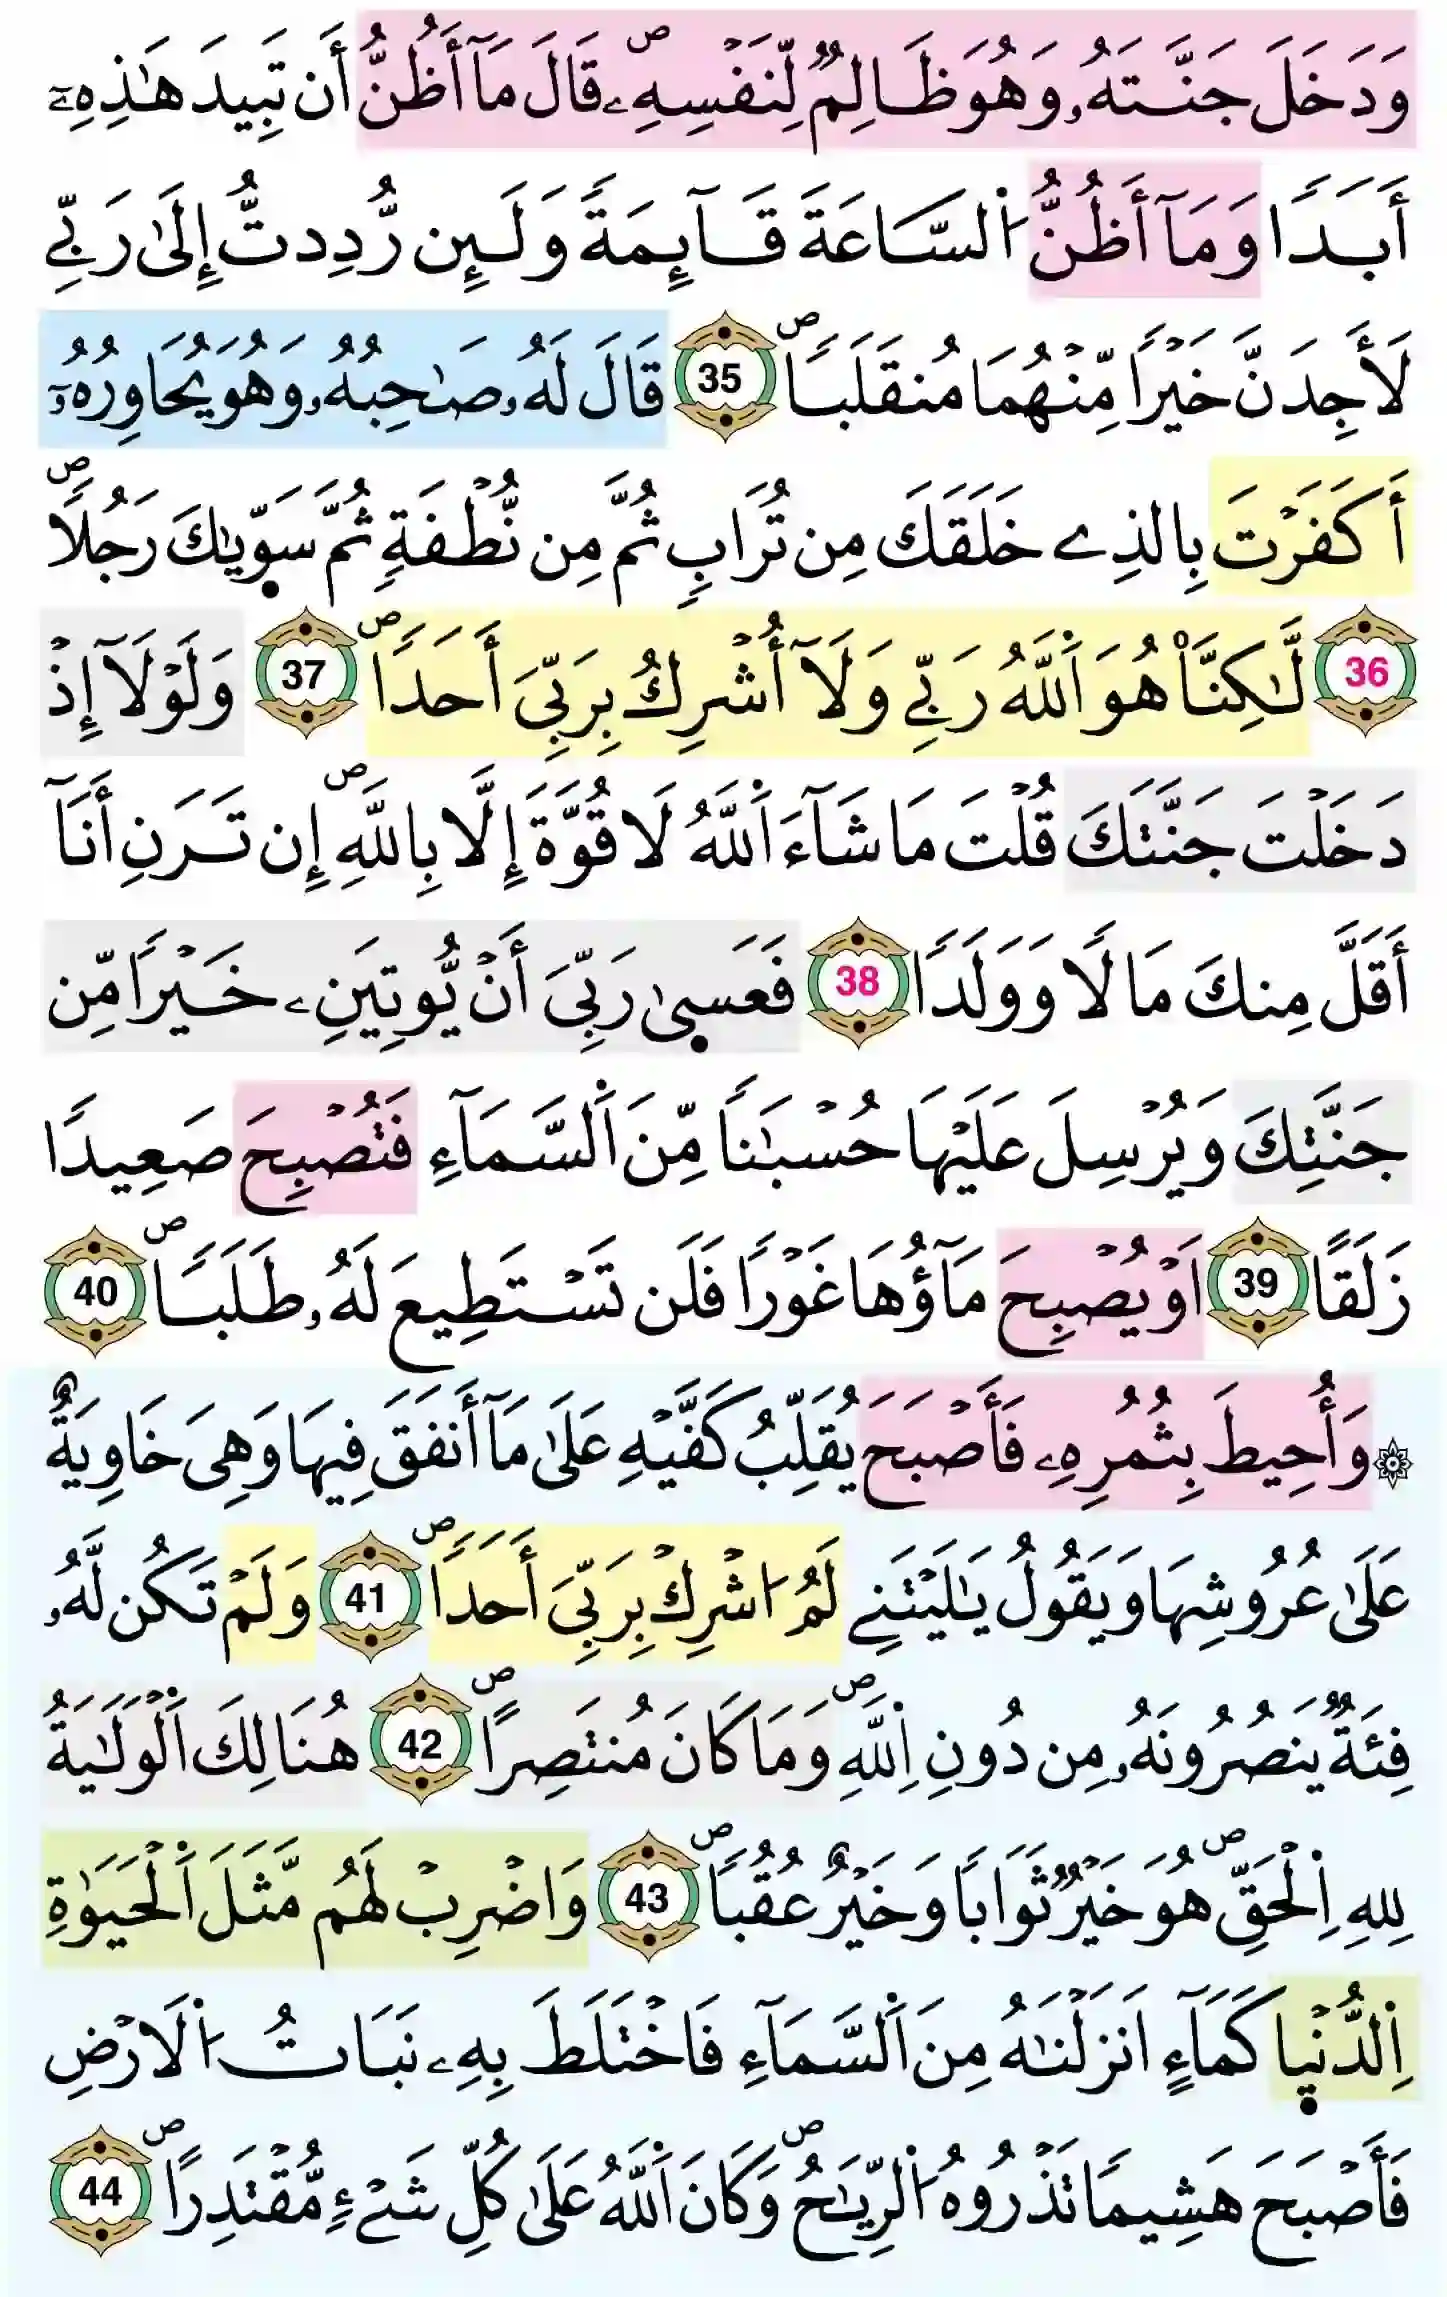 وَدَخَلَ جَنَّتَهُۥ وَهُوَ ظَالِمٞ لِّنَفْسِهِۦ ۖ قَالَ مَآ أَظُنُّ أَن تَبِيدَ هَٰذِهِۦٓ
أَبَدٗا وَمَآ أَظُنُّ اُ۬لسَّاعَةَ قَآئِمَةٗ وَلَئِن رُّدِدتُّ إِلَىٰ رَبِّے
لَأَجِدَنَّ خَيْرٗا مِّنْهُمَا مُنقَلَبٗاۖ 35 قَالَ لَهُۥ صَٰحِبُهُۥ وَهُوَ يُحَاوِرُهُۥٓ
أَكَفَرْتَ بِالذِے خَلَقَكَ مِن تُرَابٖ ثُمَّ مِن نُّطْفَةٖ ثُمَّ سَوّ۪يٰكَ رَجُلٗاۖ
36 لَّٰكِنَّا۠ هُوَ اَ۬للَّهُ رَبِّے وَلَآ أُشْرِكُ بِرَبِّيَ أَحَدٗاۖ 37 وَلَوْلَآ إِذْ
دَخَلْتَ جَنَّتَكَ قُلْتَ مَا شَآءَ اَ۬للَّهُ لَا قُوَّةَ إِلَّا بِاللَّهِۖ إِن تَرَنِ أَنَآ
أَقَلَّ مِنكَ مَالٗا وَوَلَدٗا 38 فَعَس۪يٰ رَبِّيَ أَنْ يُّوتِيَنِۦ خَيْرٗا مِّن
جَنَّتِكَ وَيُرْسِلَ عَلَيْهَا حُسْبَٰنٗا مِّنَ اَ۬لسَّمَآءِ فَتُصْبِحَ صَعِيدٗا
زَلَقًا 39 اَوْ يُصْبِحَ مَآؤُهَا غَوْرٗا فَلَن تَسْتَطِيعَ لَهُۥ طَلَبٗاۖ 40
۞ وَأُحِيطَ بِثُمُرِهِۦ فَأَصْبَحَ يُقَلِّبُ كَفَّيْهِ عَلَىٰ مَآ أَنفَقَ فِيهَا وَهِيَ خَاوِيَةٌ
عَلَىٰ عُرُوشِهَا وَيَقُولُ يَٰلَيْتَنِے لَمُ اُ۬شْرِكْ بِرَبِّيَ أَحَدٗاۖ 41 وَلَمْ تَكُن لَّهُۥ
فِئَةٞ يَنصُرُونَهُۥ مِن دُونِ اِ۬للَّهِۖ وَمَا كَانَ مُنتَصِرًاۖ 42 هُنَالِكَ اَ۬لْوَلَٰيَةُ
لِلهِ اِ۬لْحَقِّۖ هُوَ خَيْرٞ ثَوَابٗا وَخَيْرٌ عُقُبٗاۖ 43 وَاضْرِبْ لَهُم مَّثَلَ اَ۬لْحَيَوٰةِ
اِ۬لدُّنْي۪ا كَمَآءٍ اَنزَلْنَٰهُ مِنَ اَ۬لسَّمَآءِ فَاخْتَلَطَ بِهِۦ نَبَاتُ اُ۬لَارْضِ
فَأَصْبَحَ هَشِيمٗا تَذْرُوهُ اُ۬لرِّيَٰحُۖ وَكَانَ اَ۬للَّهُ عَلَىٰ كُلِّ شَےْءٖ مُّقْتَدِرًاۖ 44